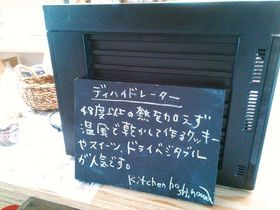 ディハイドレーター
48度以上の熱を加えず
温風で乾かして作るクッキー
やスイーツ、ドライベジタブル
が人気です。
Kitchen